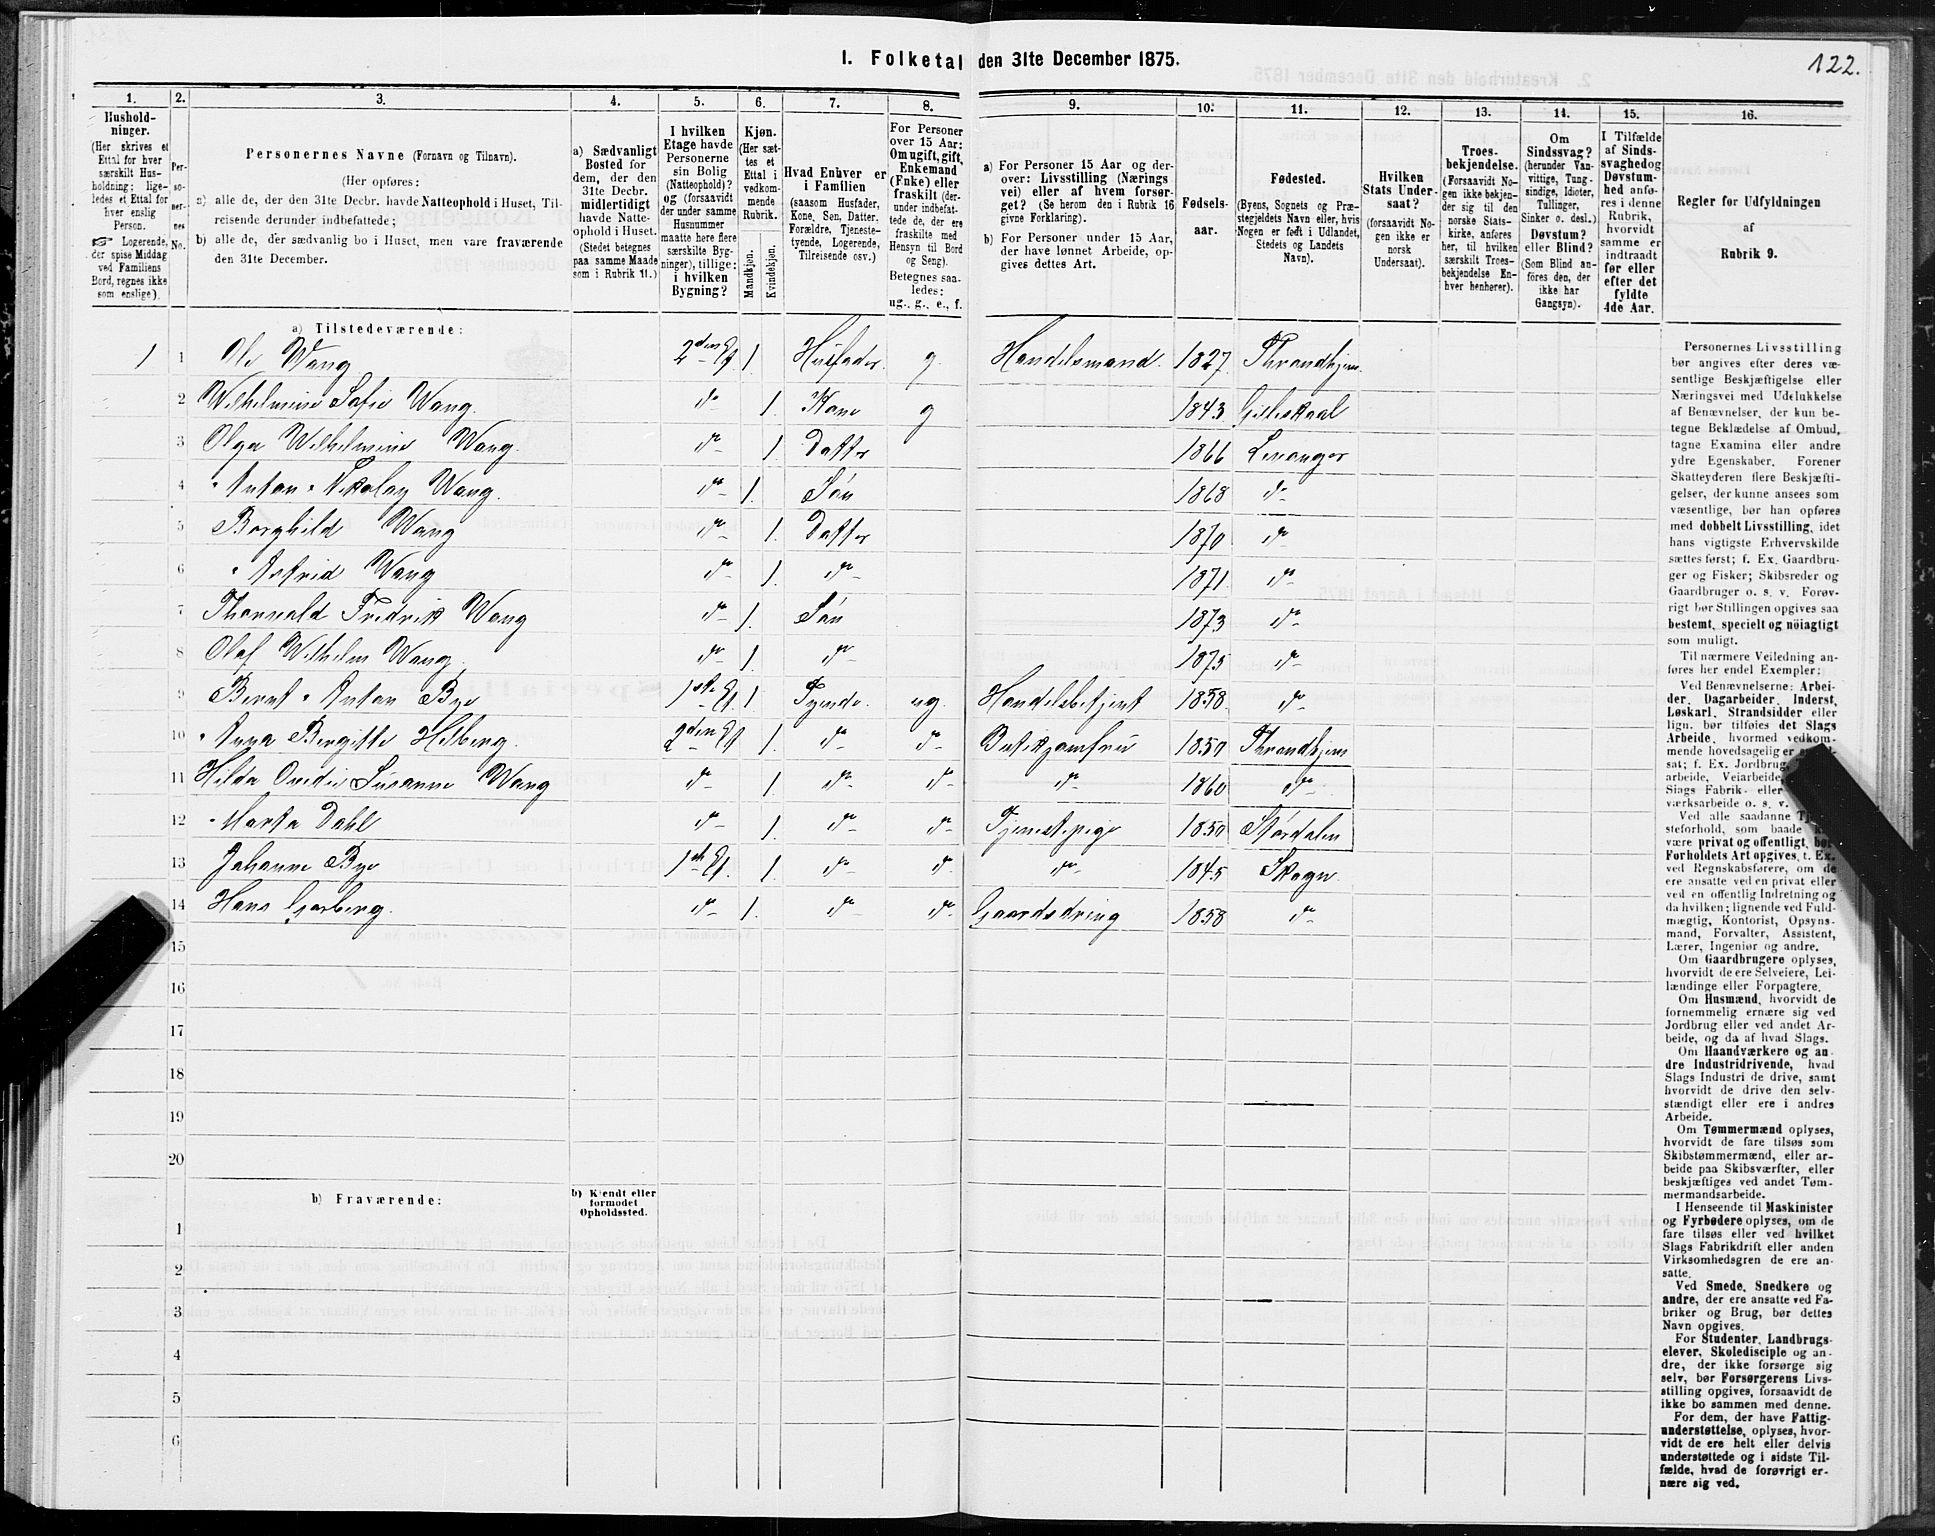 I. Folketal den 31te December 1875.
122.
1.
Hushold-
ninger.
(Her skrives et
Ettal for hver
særskilt Hus-
holdning; lige-
ledes et Ettal for
hver enslig
Person.
☞ Logerende,
der spise Middag
ved Familiens
Bord, regnes ikke
som enslige).
2.
Per-
so-
ner-
nes
No.
3.
Personernes Navne (Fornavn og Tilnavn).
(Her opføres:
a) alle de, der den 31te Decbr. havde Natteophold i Huset, Til-
reisende derunder indbefattede;
b) alle de, der sædvanlig bo i Huset, men vare fraværende
den 31te December.
4.
a) Sædvanligt
Bosted for
dem, der den
31te Decbr.
midlertidigt
havde Natte-
ophold i Huset.
(Stedet betegnes
paa samme Maade
som i Rubrik 11.)
5.
I hvilken
Etage havde
Personerne
sin Bolig
(Natteophold)?
og (forsaavidt
der under samme
Husnummer
maatte høre flere
særskilte Byg-
ninger), tillige:
i hvilken
Bygning?
6.
Kjøn.
(Her sæt-
tes et
Ettal i
vedkom-
mende
Rubrik.
Mandkjøn.
Kvindekjøn.
7.
Hvad Enhver er
i Familien
(saasom Husfader,
Kone, Søn, Datter,
Forældre, Tjeneste-
tyende, Logerende,
Tilreisende osv.)
8.
For Personer
over 15 Aar:
Om ugift, gift,
Enkemand
(Enke) eller
fraskilt (der-
under indbefat-
tede de, der ere
fraskilte med
Hensyn til Bord
og Seng).
Betegnes saa-
ledes:
ug., g., e., f.
9.
a) For Personer 15 Aar og der-
over: Livsstilling (Nærings
vei) eller af hvem forsør-
get? (Se herom den i Rubrik 16
givne Forklaring).
b) For Personer under 15 Aar,
der have lønnet Arbeide, op-
gives dettes Art.
10.
Fødsels-
aar.
11.
Fødested.
(Byens, Sognets og Præ-
stegjeldets Navn eller, hvis
Nogen er født i Udlandet,
Stedets og Landets
Navn).
12.
Hvilken
Stats Under-
saat?
(forsaavidt No-
gen ikke er
norsk
Undersaat).
13.
Troes-
bekjendelse.
(Forsaavidt No-
gen ikke bekjen-
der sig til den
norske Stats-
kirke, anføres
her, til hvilken
særskilt Troes-
bekjendelse En-
hver henhører).
14.
Om
Sindssvag?
(herunder Van-
vittige, Tung-
sindige, Idioter,
Tullinger,
Sinker o. desl.)
Døvstum?
eller Blind?
(Som Blind an-
føres den, der
ikke har
Gangsyn).
15.
I Tilfælde
af Sinds-
svaghed og
Døvstum-
hed anfø-
res i denne
Rubrik,
hvorvidt
samme er
indtraadt
før eller
efter det
fyldte
4de Aar.
16.
Regler for Udfyldningen
af
Rubrik 9.
a) Tilstedeværende:
1 1 Ole Wang 2den Et 1. Husfader. g. Handelsmand. 1827 Throndhjem
2 Wilhelmine Sofie Wang. do 1. Kone g 1843 Gilleskaal
3 Olga Wilhelmine Wang. do 1 Datter 1866 Levanger
4 Anton Nikolay Wang. do 1. Søn 1868 do
5 Borghild Wang do 1. Datter 1870 do
6 Astrid Wang do 1. do 1871. do
7 Thorvald Fredrik Wang do 1. Søn 1873 do
8 Olaf Wilhelm Wang. do 1. do 1875 do
9 Bernt Anton Bye 1ste Et. 1 Tyende. ug. Handelsbetjent 1858. do
10 Anna Bergitte Hilberg. 2den Et 1. do do Butikjomfru 1850 Throndhjem
11 Hilda Ovidie Susanne Wang do 1. do do do 1860 do
12 Marta Dahl do 1. do do Tjenestepige 1850 Stördalen
13 Johanne Bye 1ste Et. 1. do do do 1845 Skogn
14 Hans Gjorberg. do 1. do do Gaardsdreng 1858 do
15
16
17
18
19
20
b) Fraværende:
b) Kjendt eller
formodet
Opholdssted.
1
2
3
4
5
6
Personernes Livsstilling
bør angives efter deres væ-
sentlige Beskjæftigelse eller
Næringsvei med Udelukkelse
af Benævnelser, der kun be-
tegne Beklædelse af Ombud,
tagne Examina eller andre
ydre Egenskaber. Forener
Skatteyderen flere Beskjæfti-
gelser, der kunne ansees som
væsentlige, bør han opføres
med dobbelt Livsstilling, idet
hans vigtigste Erhvervskilde
sættes først; f. Ex. Gaardbru-
ger og Fisker; Skibsreder og
Gaardbruger o. s. v. Forøv-
rigt bør Stillingen opgives saa
bestemt, specielt og nöiagtigt
som muligt.
Til nærmere Veiledning an-
føres her endel Exempler:
Ved Benævnelserne: Arbei-
der, Dagarbeider, Inderst,
Løskarl, Strandsidder eller
lign. bør tilføies det Slags
Arbeide, hvormed vedkom-
mende hovedsagelig er
sat; f. Ex. Jordbrug,
arbeide, Veiarbeide,
Slags Fabrik- eller
værksarbeide o. s. v.
Ved alle saadanne
steforhold, som baade
være privat og offentligt, bør
Forholdets Art opgives, f. Ex.
ved Regnskabsførere, om de
ere ansatte ved en privat eller
ved en offentlig Indretning og
da hvilken; lignende ved Fuld-
mægtig, Kontorist, Opsyns-
mand, Forvalter, Assistent,
Lærer, Ingeniør og andre.
Om Gaardbrugere oplyses,
hvorvidt de ere Selveiere, Lei-
lændinge eller Forpagtere.
Om Husmænd, hvorvidt de
fornemmelig ernære sig ved
Jordbrug eller ved andet Ar-
beide, og da af hvad Slags.
Om Haandværkere og an
dre Industridrivende, hvad
Slags Industri de drive, samt
hvorvidt de drive den selv-
stændigt eller ere i andres
Arbeide.
Om Tømmermænd oplyses,
hvorvidt de fare tilsøs som
Skibstømmermænd, eller ar-
beide paa Skibsværfter, eller
beskjæftiges ved andet Tøm-
mermandsarbeide.
I Henseende til Maskinister
og Fyrbødere oplyses, om de
fare tilsøs eller ved hvilket
Slags Fabrikdrift eller anden
Virksomhedsgren de ere an-
satte.
Ved Smede, Snedkere og
andre, der ere ansatte ved Fa-
briker og Brug, bør dettes
Navn opgives.
For Studenter, Landbrugs-
elever, Skoledisciple og an-
dre, der ikke forsørge sig
selv, bør Forsørgerens Livs-
stilling opgives, forsaavidt de
ikke bo sammen med denne.
For dem, der have Fattig-
understøttelse, oplyses, hvor-
vidt de ere helt eller delvis
understøttede og i sidste Til-
fælde, hvad de forøvrigt er-
nære sig ved.